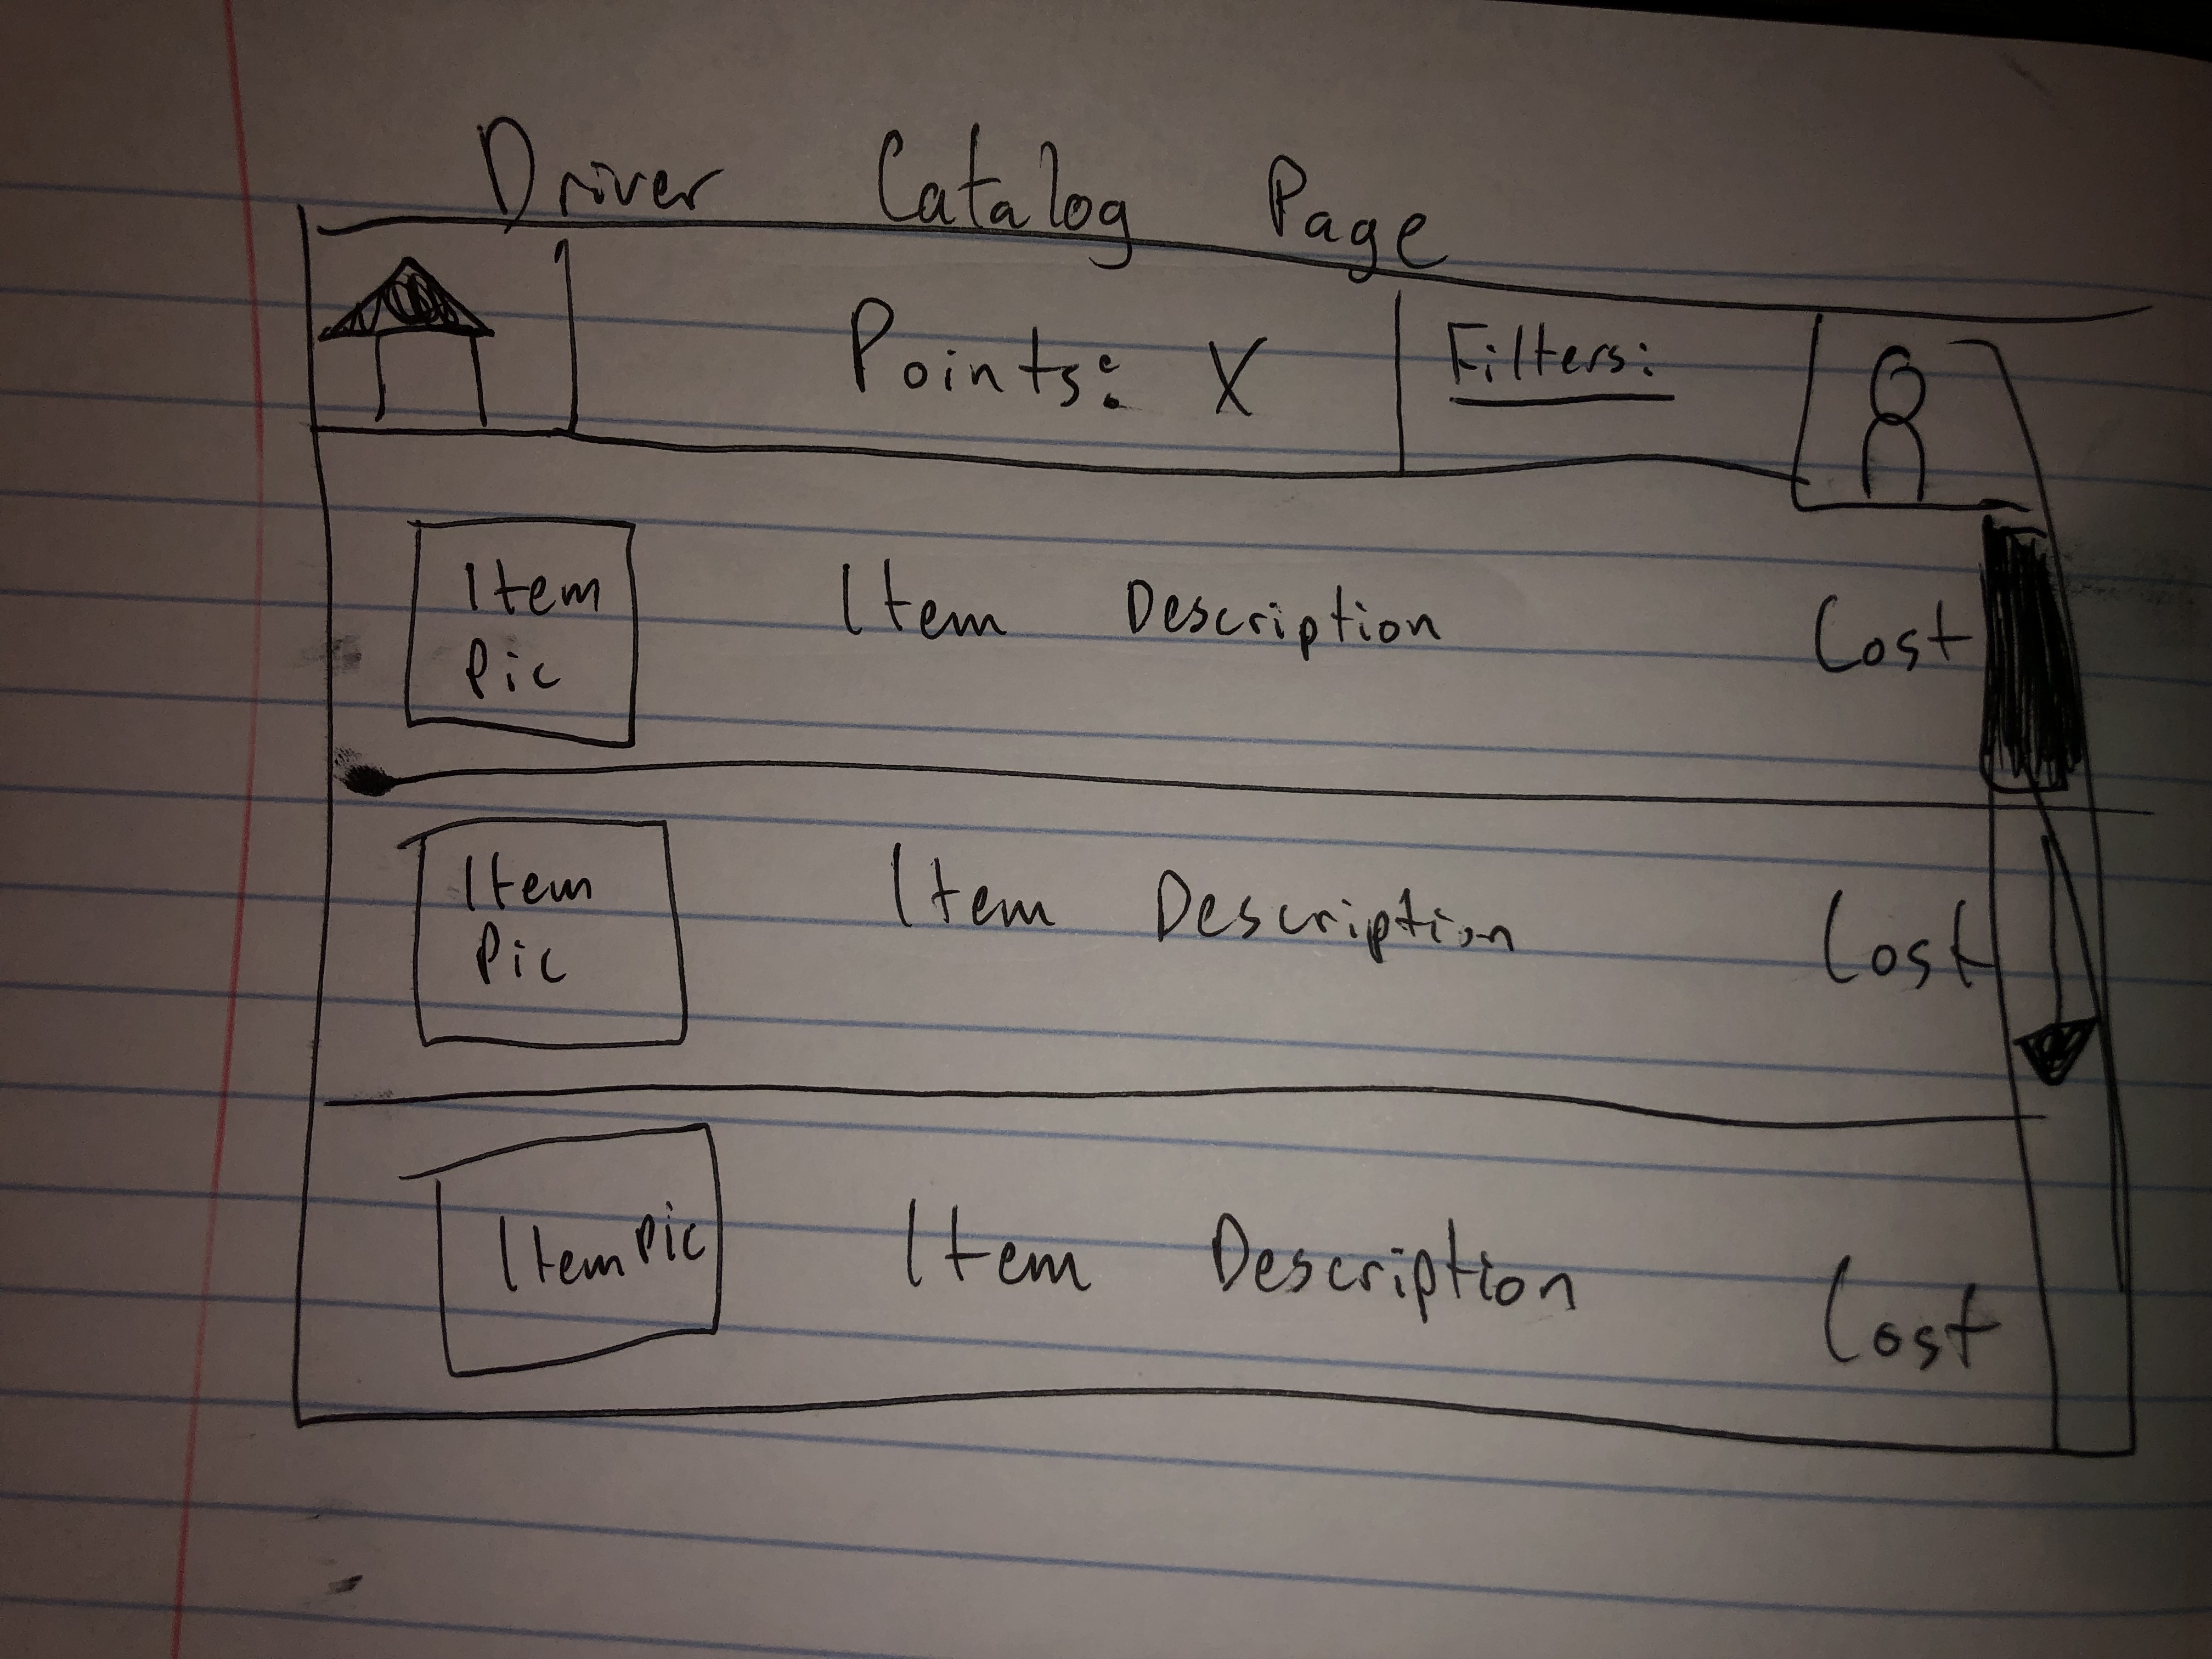 Driver Catalog Page
Points: X
Filters:
Item
Pic
Item Description
Cost
Item
Pic
Item Description
Cost
Item Pic
Item Description
Cost